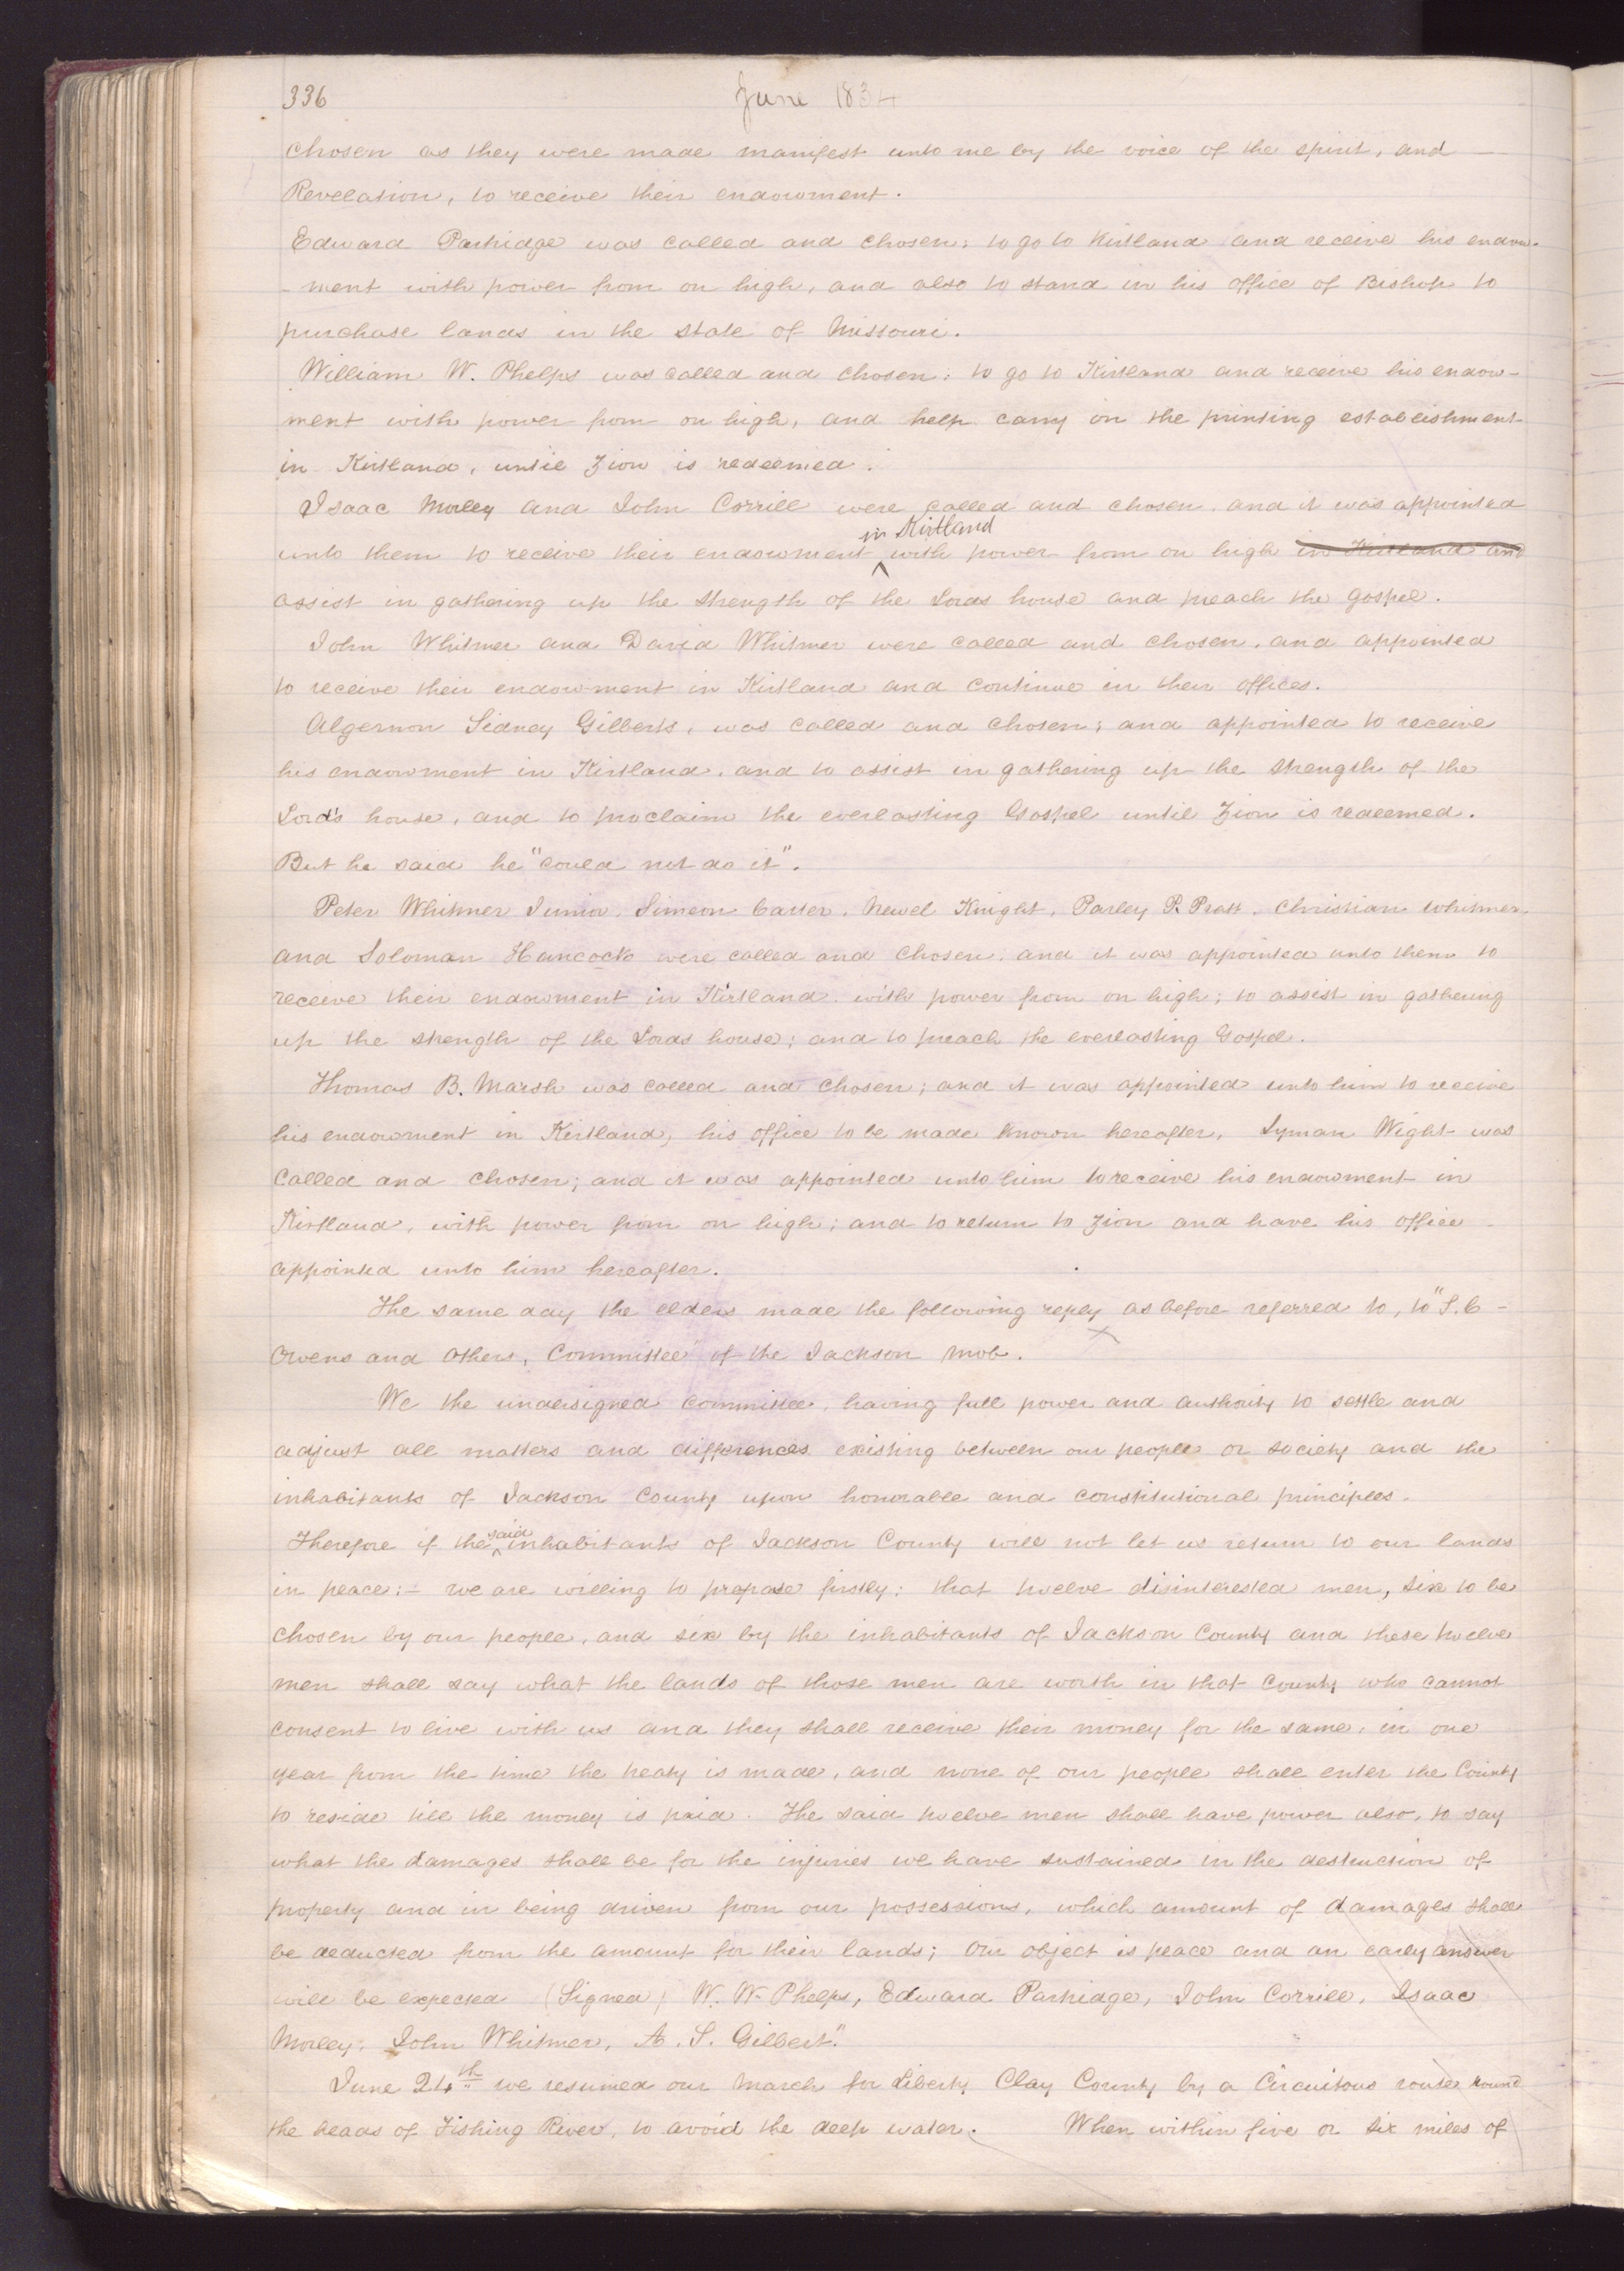 336
June 1834
chosen as they were made manifest unto me by the voice of the spirit, and
Revelation, to receive their endowment.
Edward Partridge was called and chosen; to go to Kirtland and receive his endow-
-ment with power from on high, and also to stand in his office of Bishop to
purchase lands in the state of Missouri.
William W. Phelps was called and chosen; to go to Kirtland and receive his endow-
ment with power from on high, and help carry on the printing establishment
in Kirtland, until Zion is redeemed.
Isaac Morley and John Corrill were called and chosen, and it was appointed
in Kirtland
unto them to receive their endowment ^ with power from on high in Kirtland and
assist in gathering up the strength of the Lords house and preach the gospel.
John Whitmer and David Whitmer were called and chosen, and appointed
to receive their endowment in Kirtland and continue in their offices.
Algernon Sidney Gilberts, was called and chosen; and appointed to receive
his endowment in Kirtland, and to assist in gathering up the strength of the
Lord's house, and to proclaim the everlasting Gospel until Zion is redeemed.
But he said he "could not do it".
Peter Whitmer Junior, Simeon Carter, Newel Knight, Parley P. Pratt, Christian Whitmer,
and Soloman Hancock were called and chosen, and it was appointed unto them to
receive their endowment in Kirtland, with power from on high; to assist in gathering
up the strength of the Lords house; and to preach the everlasting Gospel.
Thomas B. Marsh was called and chosen; and it was appointed unto him to receive
his endowment in Kirtland, his office to be made known hereafter. Lyman Wight was
called and chosen; and it was appointed unto him to receive his endowment in
Kirtland, with power from on high; and to return to Zion and have his office
appointed unto him hereafter.
The same day the elders made the following reply as before referred to, to "S. C-
Owens and others, Committee" of the Jackson mob.
We the undersigned committee, having full power and authority to settle and
adjust all matters and differences existing between our people or society and the
inhabitants of Jackson County upon honorable and constitutional principles.
said
Therefore if the ^ inhabitants of Jackson County will not let us return to our lands
in peace:- we are willing to propose firstly: that twelve disinterested men, six to be
chosen by our people, and six by the inhabitants of Jackson County and these twelve
men shall say what the lands of those men are worth in that County who cannot
consent to live with us and they shall receive their money for the same, in one
year from the time the treaty is made, and none of our people shall enter the County
to reside till the money is paid. The said twelve men shall have power also, to say
what the damages shall be for the injuries we have sustained in the destruction of
property and in being driven from our possessions, which amount of damages shall
be deducted from the amount for their lands; Our object is peace and an early answer
will be expected (Signed) W. W. Phelps, Edward Partridge, John Corrill, Isaac
Morley, John Whitmer, A. S. Gilbert."
June 24th we resumed our march for Liberty Clay County by a Circuitous route round
the heads of Fishing River, to avoid the deep water. When within five or six miles of